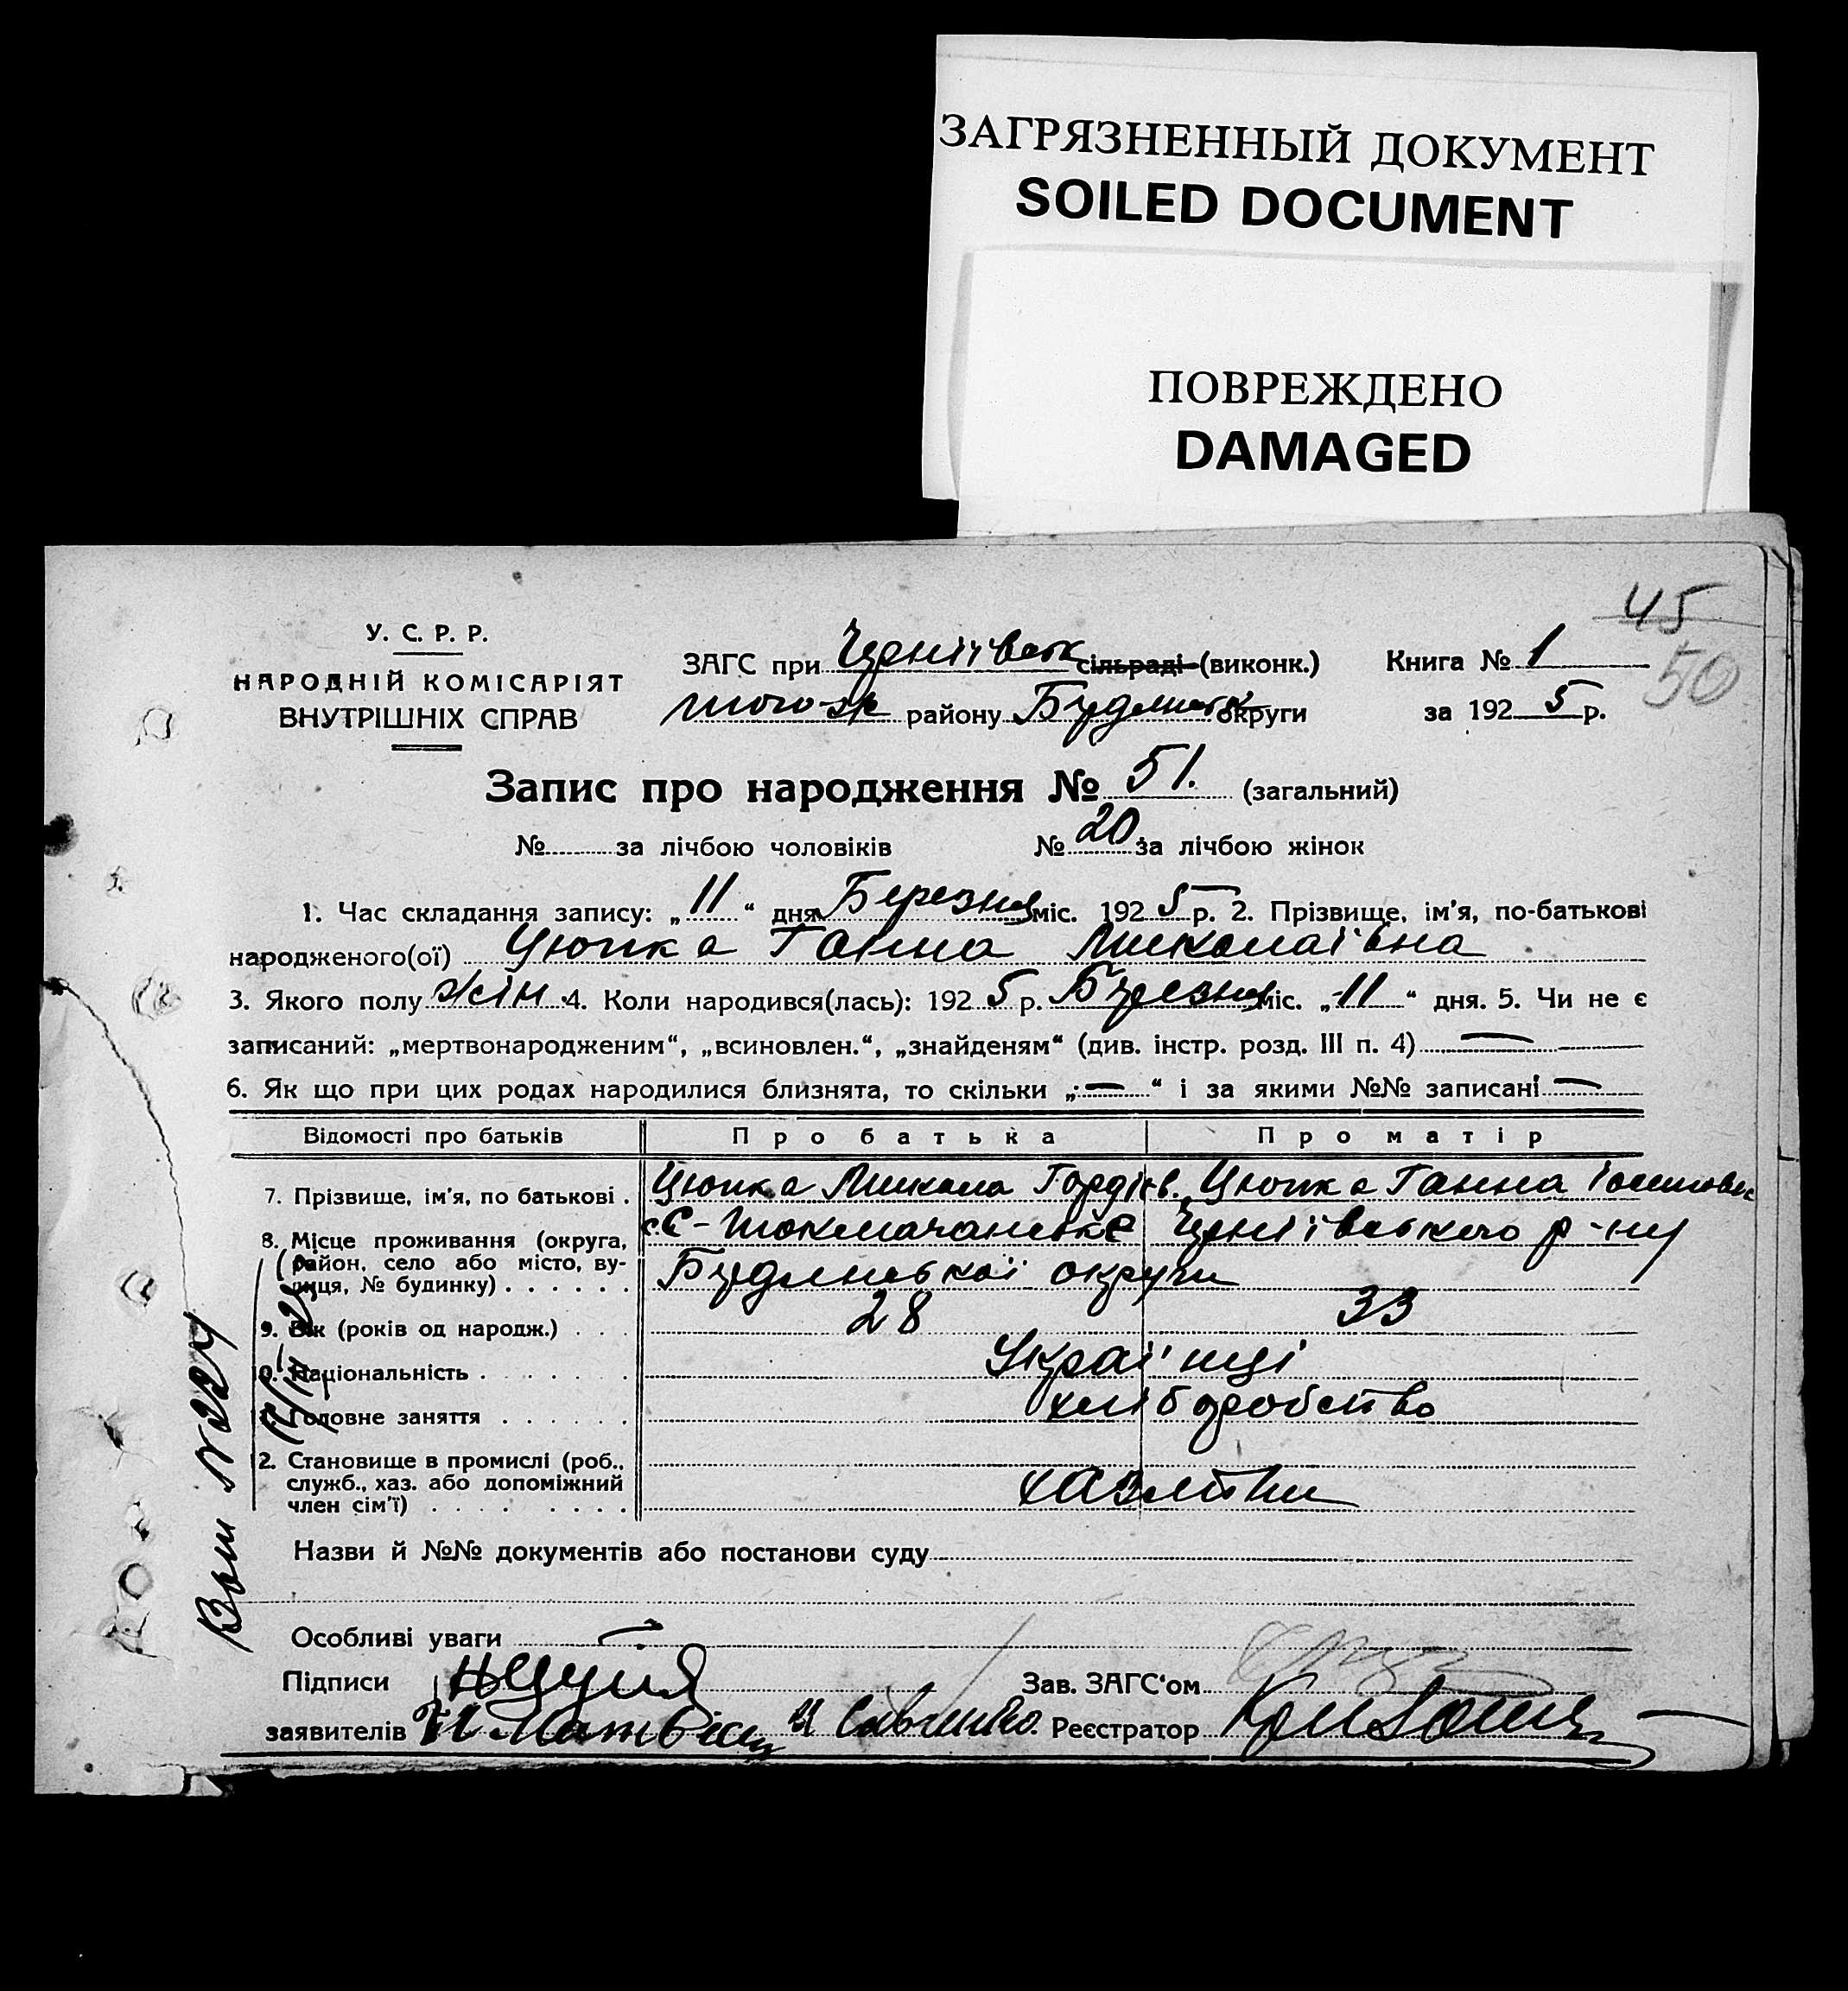 ЗАГРЯЗНЕННЫЙ ДОКУМЕНТ
SOILED DOCUMENT
ПОВРЕЖДЕНО
DAMAGED
45
50
У. С. Р. Р.
НАРОДНІЙ КОМІСАРІЯТ
ВНУТРІШНІХ СПРАВ
ЗАГС при Чернігівськ сільраді (виконк.) Книга № 1
того-ж району округи за 1925 р.
Запис про народження № 51. (загальний)
№ за лічбою чоловіків № 20 за лічбою жінок
1. Час складання запису: „11“ дня Березня міс. 1925 р. 2. Прізвище, ім'я, по-батькові
народженого(ої) Цюпка Ганна Миколаївна
3. Якого полу жін. 4. Коли народився(лась): 1925 р. Березня міс. „11“ дня. 5. Чи не є
записаний: „мертвонародженим“, „всиновлен.“, „знайденям“ (див. інстр. розд. III п. 4) —
6. Як що при цих родах народилися близнята, то скільки „—“ і за якими №№ записані —
Відомості про батьків Про батька Про матір
7. Прізвище, ім'я, по батькові . Цюпка Микола Гордієв. Цюпка Ганна
8. Місце проживання (округа, район, село або місто, вулиця, № будинку) . . . . . .
р-ну
округи
9. Вік (років од народж.) . . . 28 33
10. Національність . . . . . . . Українці
11. Головне заняття . . . . . . хліборобство
12. Становище в промислі (роб., служб., хаз. або допоміжний член сім'ї) . . . . . . . .
Назви й №№ документів або постанови суду
Особливі уваги —
Підписи Зав. ЗАГС'ом
заявителів Реєстратор
№ 224